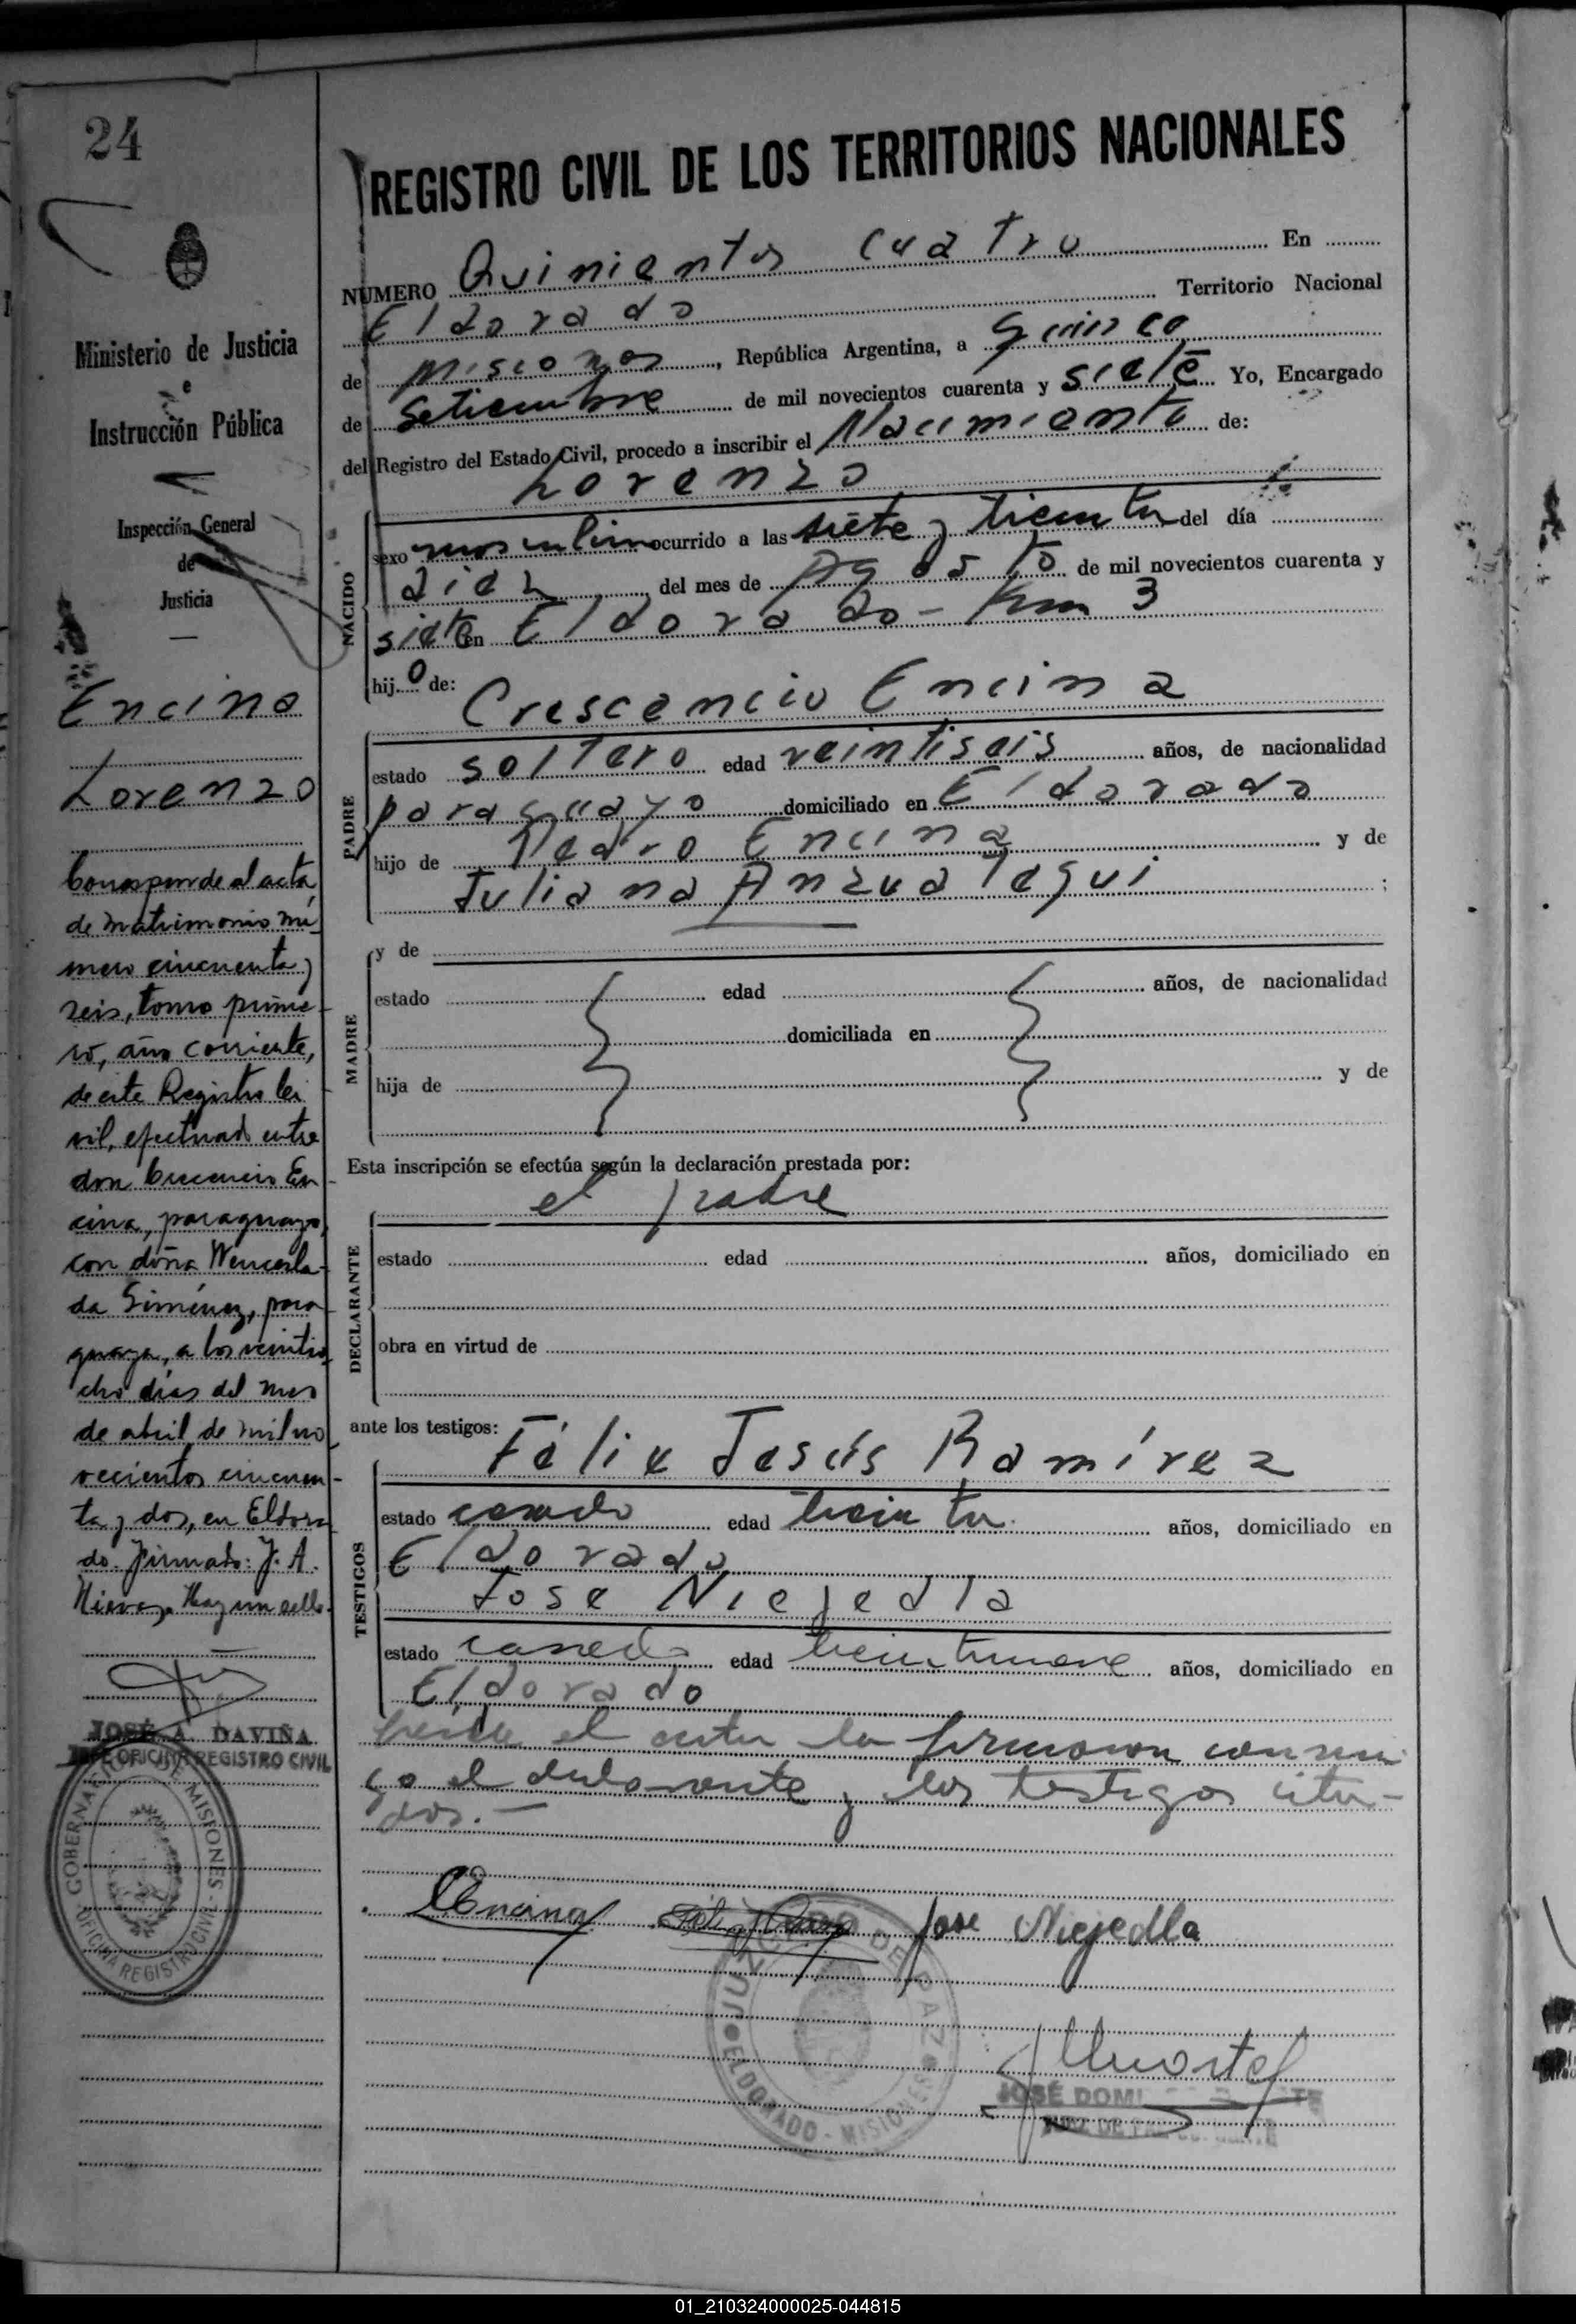 24
Ministerio de Justicia
e
Instrucción Pública
Inspección General
de
Justicia
Encina
Lorenzo
Corresponde al acta
de matrimonio nú
mero cincuenta y
seis, tomo prime-
ro, año corriente,
de este Registro Ci
vil, efectuado entre
don Crecencio En-
cina, paraguayo,
con doña Wencesla-
da Giménez, para-
guaya, a los veintio
cho días del mes
de abril de mil no
vecientos cincuen-
ta y dos, en Eldora
do. Firmado: J. A.
Hay un sello.
JOSÉ A. DAVIÑA
JEFE OFICINA REGISTRO CIVIL
GOBERNACION DE MISIONES
OFICINA REGISTRO CIVIL
REGISTRO CIVIL DE LOS TERRITORIOS NACIONALES
NUMERO Quinientos cuatro En
Eldorado Territorio Nacional
de Misiones, República Argentina, a cinco
de Setiembre de mil novecientos cuarenta y siete Yo, Encargado
del Registro del Estado Civil, procedo a inscribir el Nacimiento de:
Lorenzo
NACIDO
sexo masculino ocurrido a las siete y treinta del día
diez del mes de Agosto de mil novecientos cuarenta y
siete en Eldorado - Km 3
hijo de:
Crescencio Encina
PADRE
estado soltero edad veintiseis años, de nacionalidad
paraguayo domiciliado en Eldorado
hijo de Pedro Encina y de
Juliana Anzuategui ;
MADRE
y de
estado edad años, de nacionalidad
domiciliada en
hija de y de
Esta inscripción se efectúa según la declaración prestada por:
el padre
DECLARANTE
estado edad años, domiciliado en
obra en virtud de
ante los testigos:
Félix Jesús Ramírez
TESTIGOS
estado casado edad treinta años, domiciliado en
Eldorado
Jose Niejedla
estado casado edad treintinueve años, domiciliado en
Eldorado
Leída el acta la firmaron conmi
go el declarante y los testigos cita-
dos.-
CEncina Jose Niejedla
JUZGADO DE PAZ
ELDORADO - MISIONES
JHuarte
JOSÉ DOMI
JUEZ DE PAZ
01_210324000025-044815